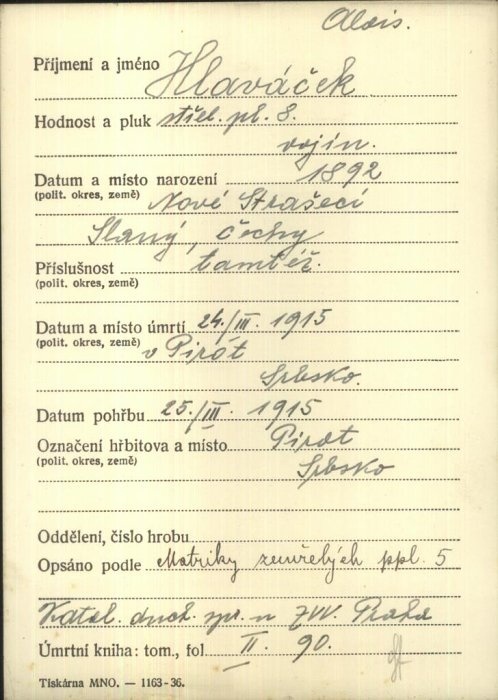 Alois.
Příjmení a jméno Hlaváček
Hodnost a pluk střel. pl. 8.
vojín.
Datum a místo narození 1892
(polit. okres, země) Nové Strašecí
Slaný, Čechy
Příslušnost tamtéž.
(polit. okres, země)
Datum a místo úmrtí 24./III. 1915
(polit. okres, země) v Pirót
Srbsko.
Datum pohřbu 25./III. 1915
Označení hřbitova a místo Pirot
(polit. okres, země) Srbsko
Oddělení, číslo hrobu
Opsáno podle Matriky zemřelých ppl. 5
Katol. duch. spr. u ZVV. Praha
Úmrtní kniha: tom., fol II. 90.
Tiskárna MNO. — 1163-36.